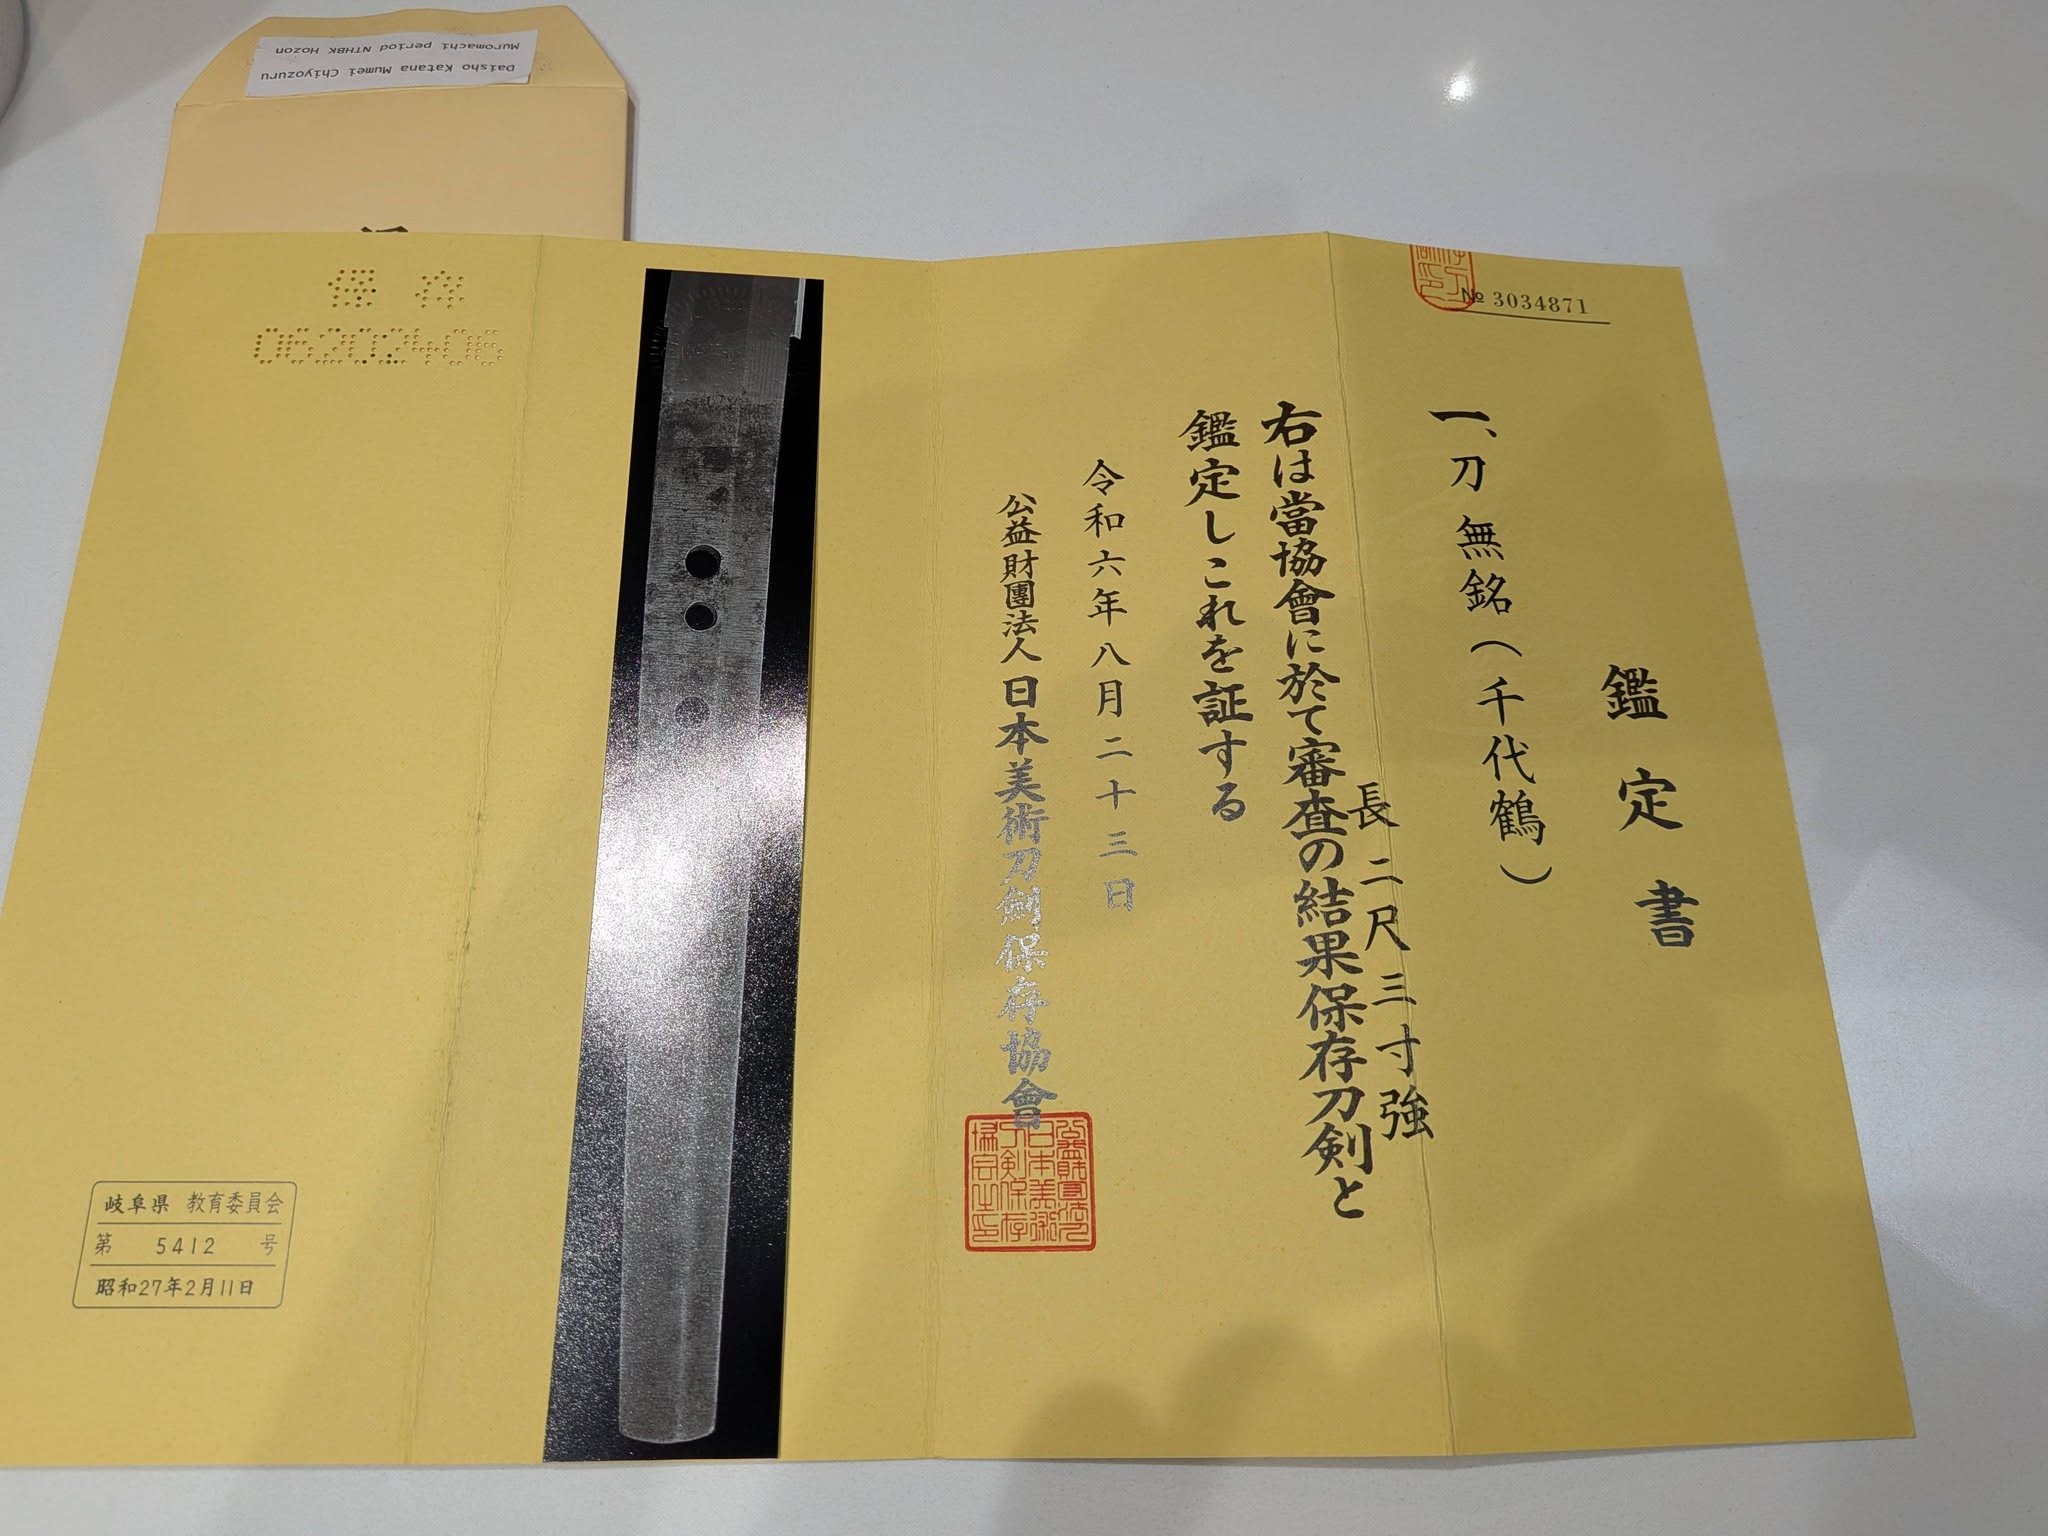 Daisho Katana Mumei Chiyozuru
Muromachi period NTHBK Hozon
№ 3034871
鑑定書
一、刀 無銘(千代鶴)
長二尺三寸強
右は當協會に於て審査の結果保存刀剣と
鑑定しこれを証する
令和六年八月二十三日
公益財團法人日本美術刀剣保存協會
保存
06202406
岐阜県 教育委員会
第 5412 号
昭和27年2月11日